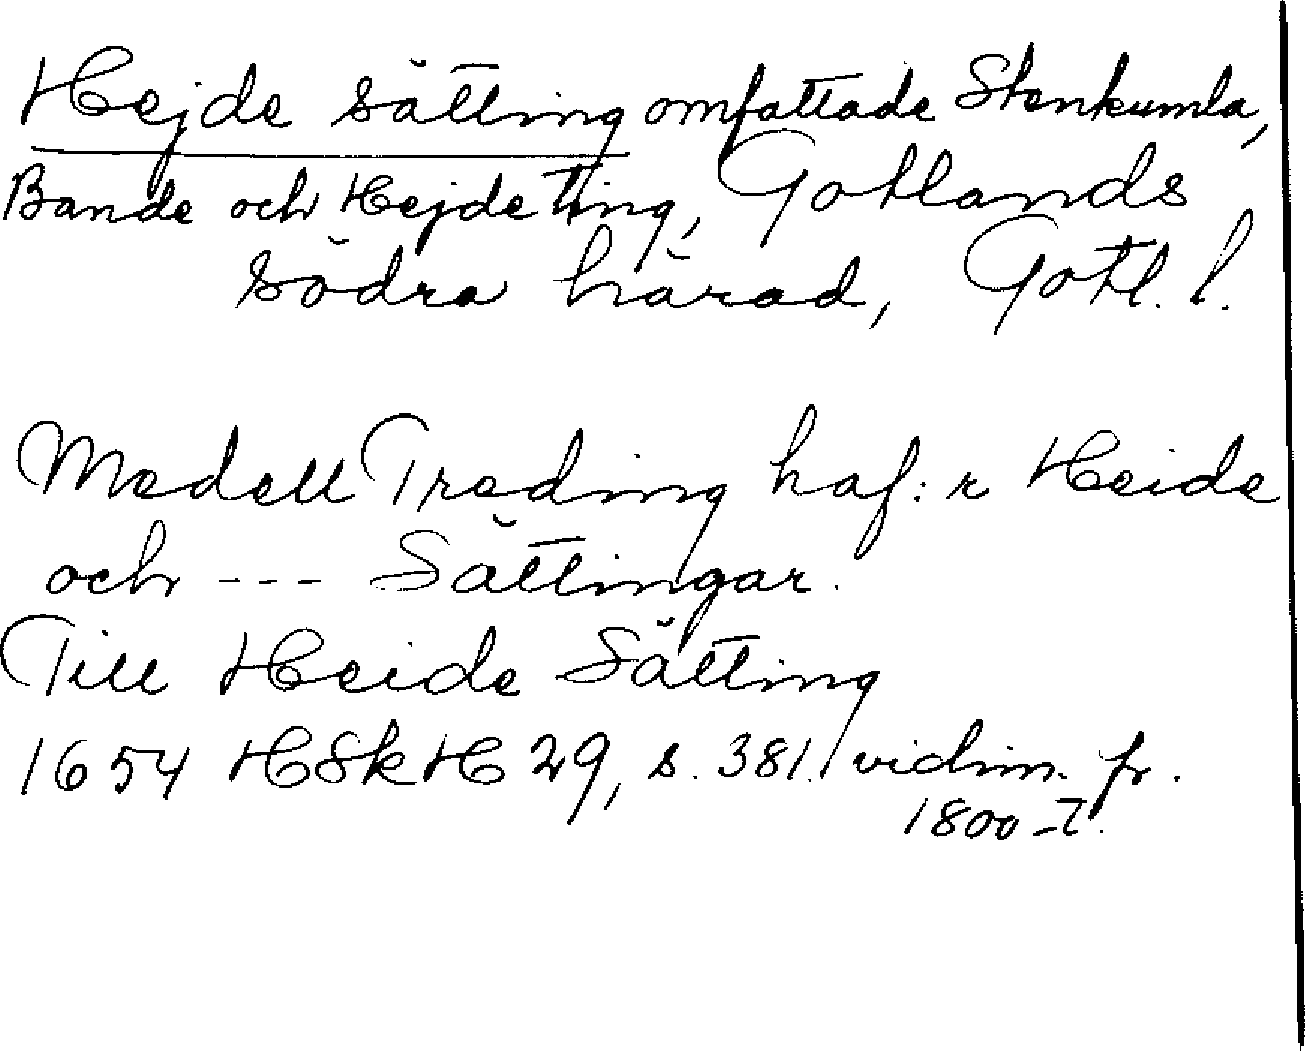 Hejde sätting omfattade Stenkumla,
Bande och Hejde ting, Gotlands
södra härad, Gotl. l.
Medell Treding haf:r Heide
och --- Sättingar.
Till Heide Sätting
1654 HSkH 29, s. 381. vidim. fr.
1800-t.